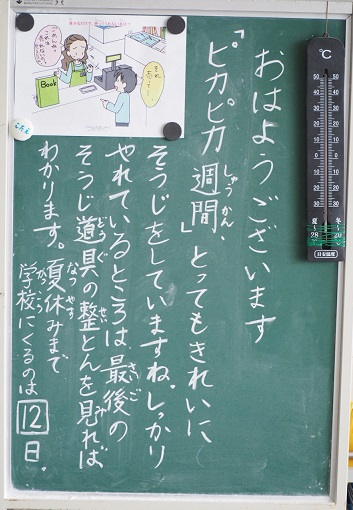 おはようございます
「ピカピカ週間」、とってもきれいに
そうじをしていますね。しっかり
やれているところは、最後の
そうじ道具の整とんを見れば
わかります。夏休みまで
学校にくるのは12日。
Book
℃
夏
冬
28
20
目安温度